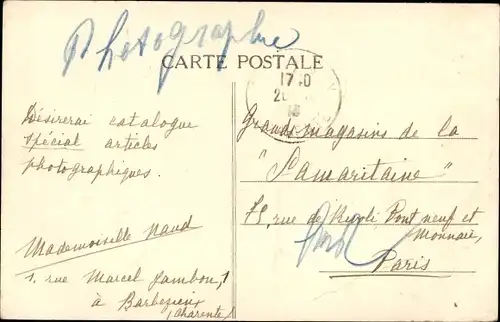 Photographie
CARTE POSTALE
17 0
Désirerai catalogue
spécial articles
photographiques.
Mademoiselle Naud
1, rue Marcel Jambon, 1
à Barbezieux
(Charente)
Grands magasins de la
"Samaritaine"
75, rue de Rivoli Pont neuf et
Monnaie,
Paris